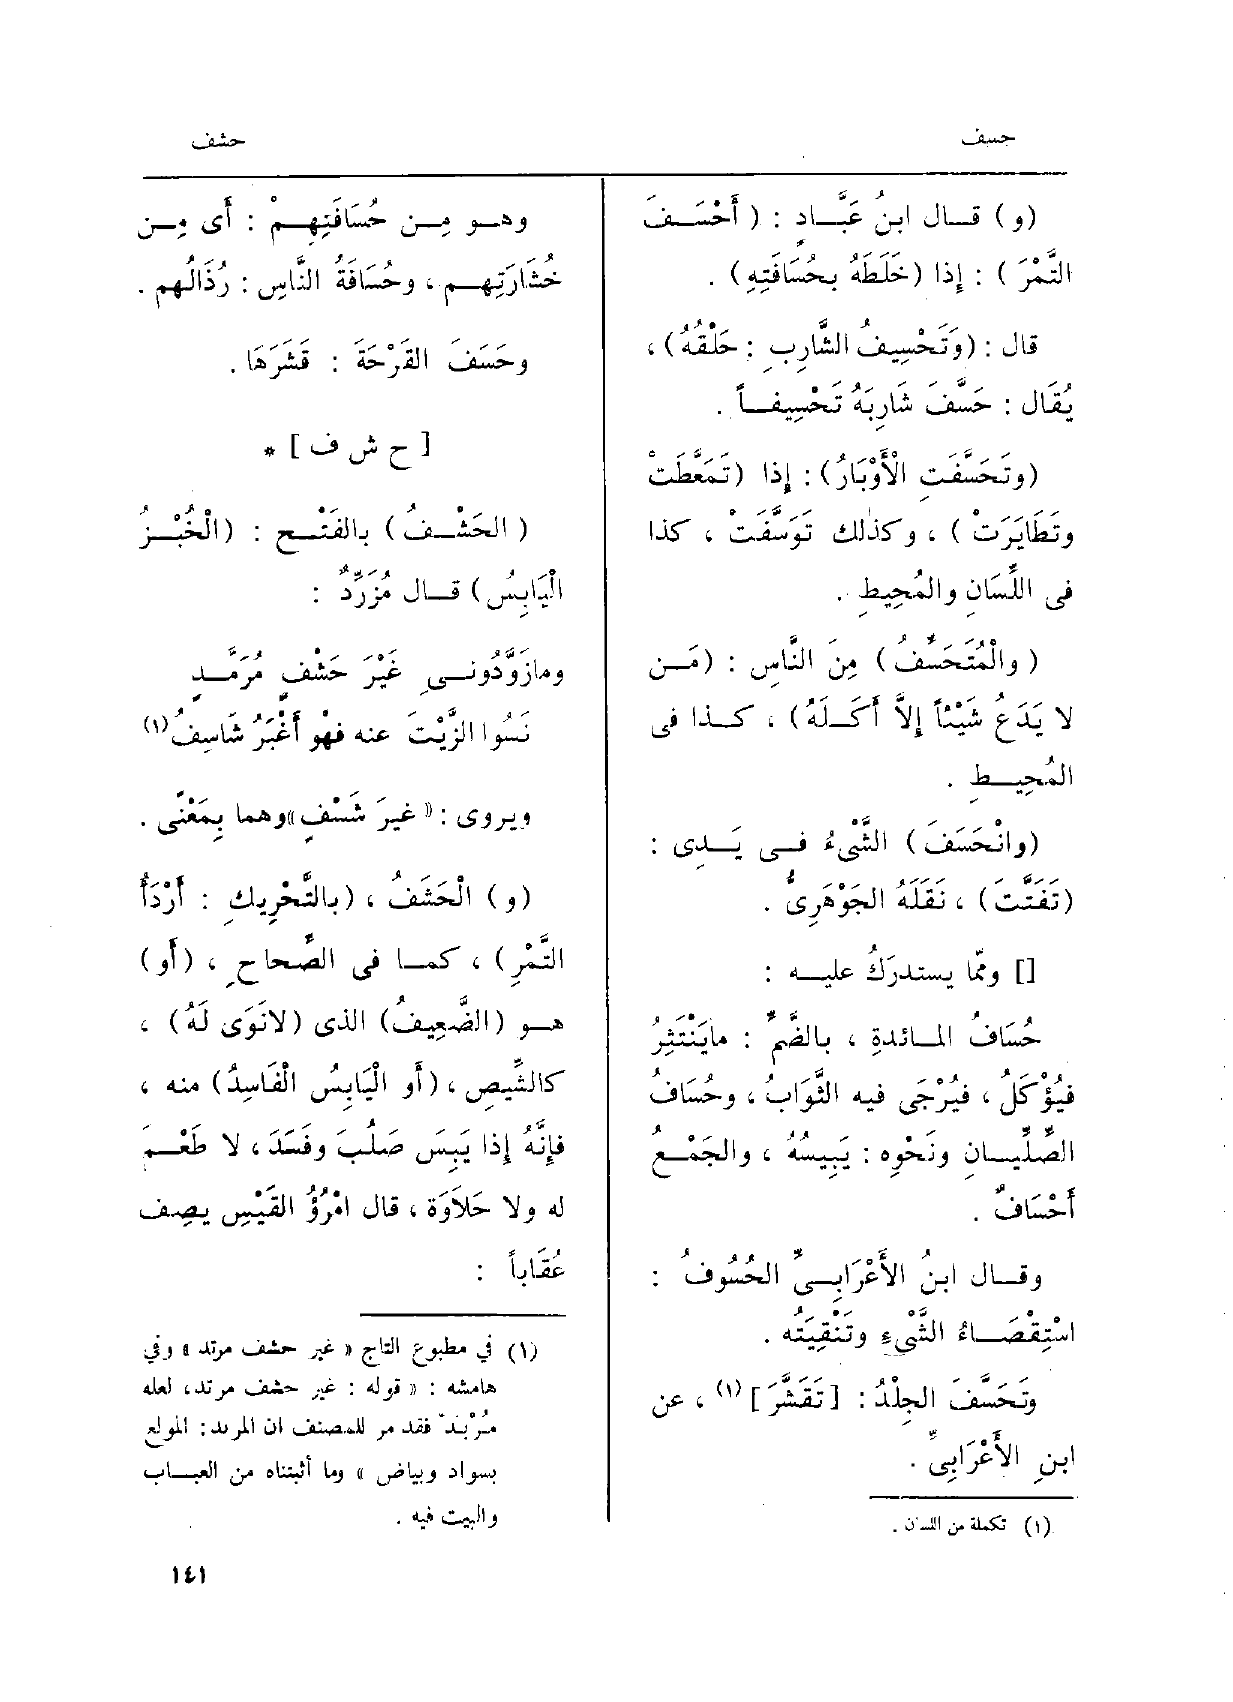 حسف
حشف
(و) قــال ابنُ عَبَّــادٍ : (أَحْسَــفَ
التَّمْرَ ) : إِذا (خَلَطَهُ بحُسَافَتِهِ) .
قال : (وَتَحْسِيفُ الشَّارِبِ : حَلْقُهُ) ،
يُقَال : حَسَّفَ شَارِبَهُ تَحْسِيفــاً .
(وتَحَسَّفَتِ الْأَوْبَارُ) : إِذا (تَمَعَّطَتْ
وتَطَايَرَتْ ) ، وكذٰلك تَوَسَّفَتْ ، كذا
فى اللِّسَانِ والمُحِيطِ .
( والْمُتَحَسِّفُ ) مِنَ النَّاسِ : (مَــن
لا يَدَعُ شَيْئاً إِلاَّ أَكــلَهُ) ، كــذا فى
المُحِيــطِ .
(وانْحَسَفَ ) الشَّيْءُ فــى يَــدِى :
(تَفَتَّتَ ) ، نَقَلَهُ الجَوْهَرِىُّ .
[] وممّا يستدرَكُ عليــه :
حُسَافُ المــائدةِ ، بالضَّمِّ : مايَنْتَثِرُ
فيُؤْكَلُ ، فيُرْجَى فيه الثَّوَابُ ، وحُسَافُ
الصِّلِّيــانِ ونَحْوِه : يَبِيسُهُ ، والجَمْــعُ
أَحْسَافٌ .
وقــال ابنُ الأَعْرَابِــىِّ الحُسُوفُ :
اسْتِقْصَــاءُ الشَّيْءِ وتَنْقِيَتُه .
وتَحَسَّفَ الجِلْدُ : [تَقَشَّرَ] (١) ، عن
ابنِ الأَعْرَابِىِّ .
(١) تكملة من اللسان .
وهــو مِــن حُسَافَتِهِــمْ : أَى مِــن
خُشَارَتِهــم ، وحُسَافَةُ النَّاسِ : رُذَالُهم .
وحَسَفَ القَرْحَةَ : قَشَرَهَا .
[ ح ش ف ] *
( الحَشْــفُ ) بالفَتْــحِ : (الْخُبْــزُ
الْيَابِسُ) قــال مُزَرِّدٌ :
ومازَوَّدُونــى غَيْرَ حَشْفٍ مُرَمَّــدٍ
نَسُوا الزَّيْتَ عنه فهْو أَغْبَرُ شَاسِفُ (١)
ويروى : « غيرَ شَسْفٍ »وهما بِمَعْنًى .
(و) الْحَشَفُ ، (بالتَّحْرِيكِ : أَرْدَأُ
التَّمْرِ) ، كمــا فى الصِّحاحِ ، (أَو)
هــو (الضَّعِيفُ) الذى (لانَوَى لَهُ) ،
كالشِّيصِ ، (أَو الْيَابِسُ الْفَاسِدُ) منه ،
فإِنَّهُ إِذا يَبِسَ صَلُبَ وفَسَدَ ، لا طَعْــمَ
له ولا حَلاَوَة ، قال امْرُؤُ القَيْسِ يصِف
عُقَاباً :
(١) في مطبوع التاج « غير حشف مرتد » وفي
هامشه : « قوله : غير حشف مرتد، لعله
مُرْبَد فقد مر للمصنف ان المربد : المولع
بسواد وبياض » وما أثبتناه من العبــاب
والبيت فيه .
١٤١